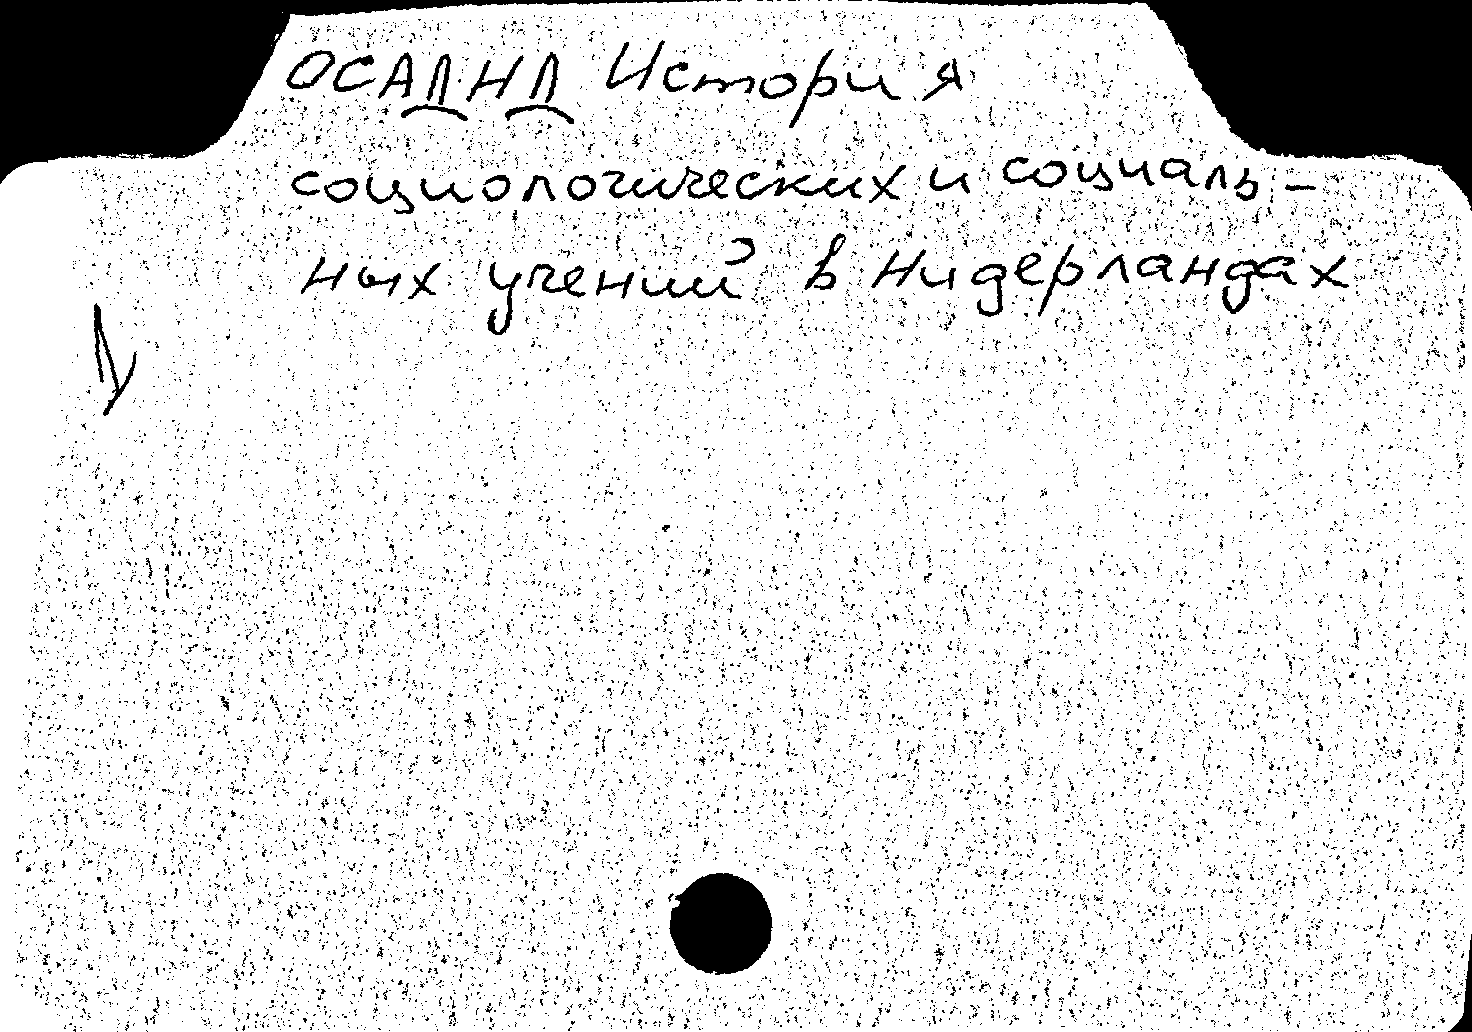 ОСАДНД История
социологических и социаль-
ных учений в Нидерландах